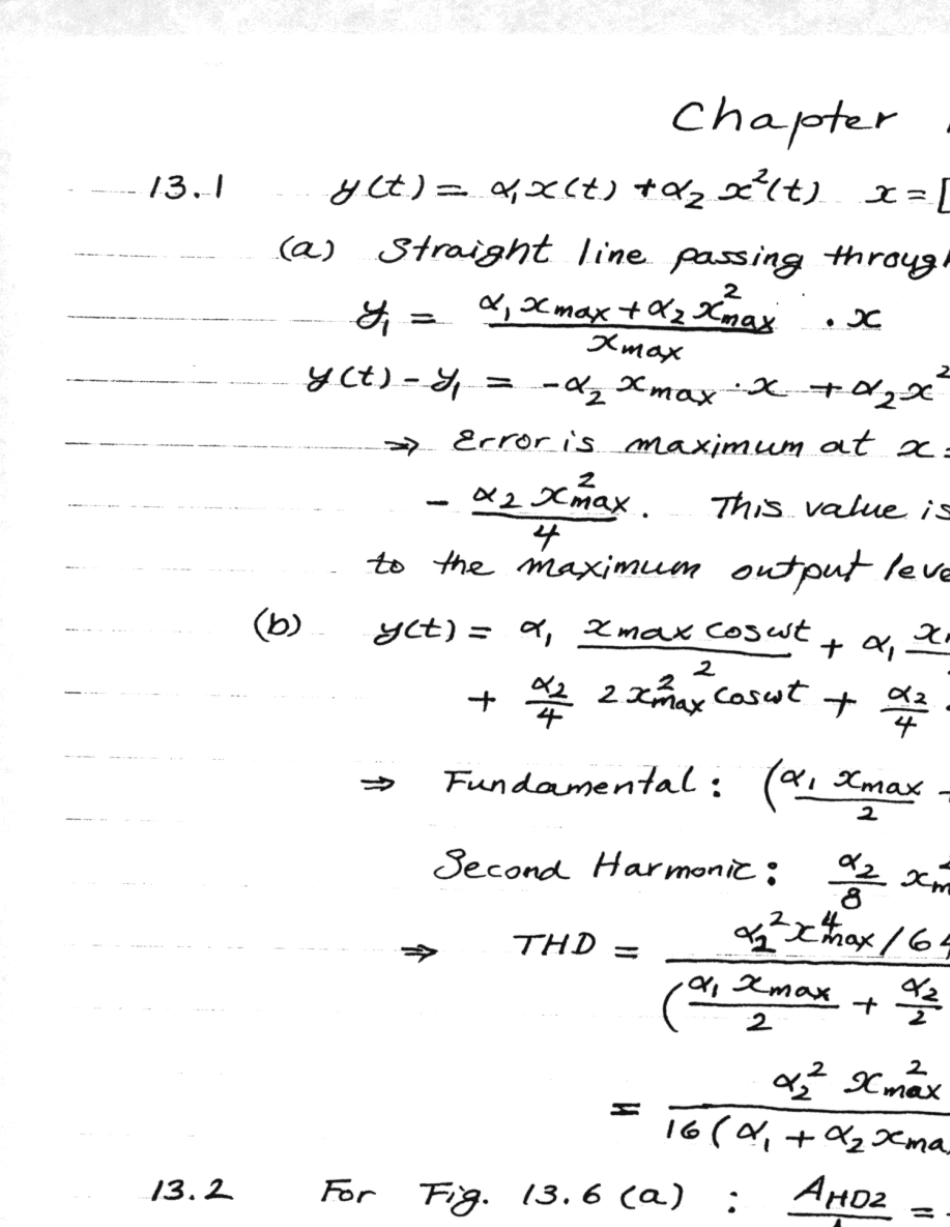 Chapter
13.1 y(t) = α₁x(t) + α₂ x²(t) x = [
(a) Straight line passing through
y₁ = (α₁ x max + α₂ x²max) / x max · x
y(t) - y₁ = -α₂ x max · x + α₂ x²
⇒ Error is maximum at x =
- α₂ x²max / 4 . This value is
to the maximum output leve
(b) y(t) = α₁ x max cos ωt / 2 + α₁ x
+ α₂/4 2 x²max cos ωt + α₂/4
⇒ Fundamental : (α₁ x max / 2 +
Second Harmonic : α₂/8 x m
⇒ THD = α₂² x⁴max / 64 / (α₁ x max / 2 + α₂ / 2
= α₂² x²max / 16 (α₁ + α₂ x ma
13.2 For Fig. 13.6 (a) : A HD2 =